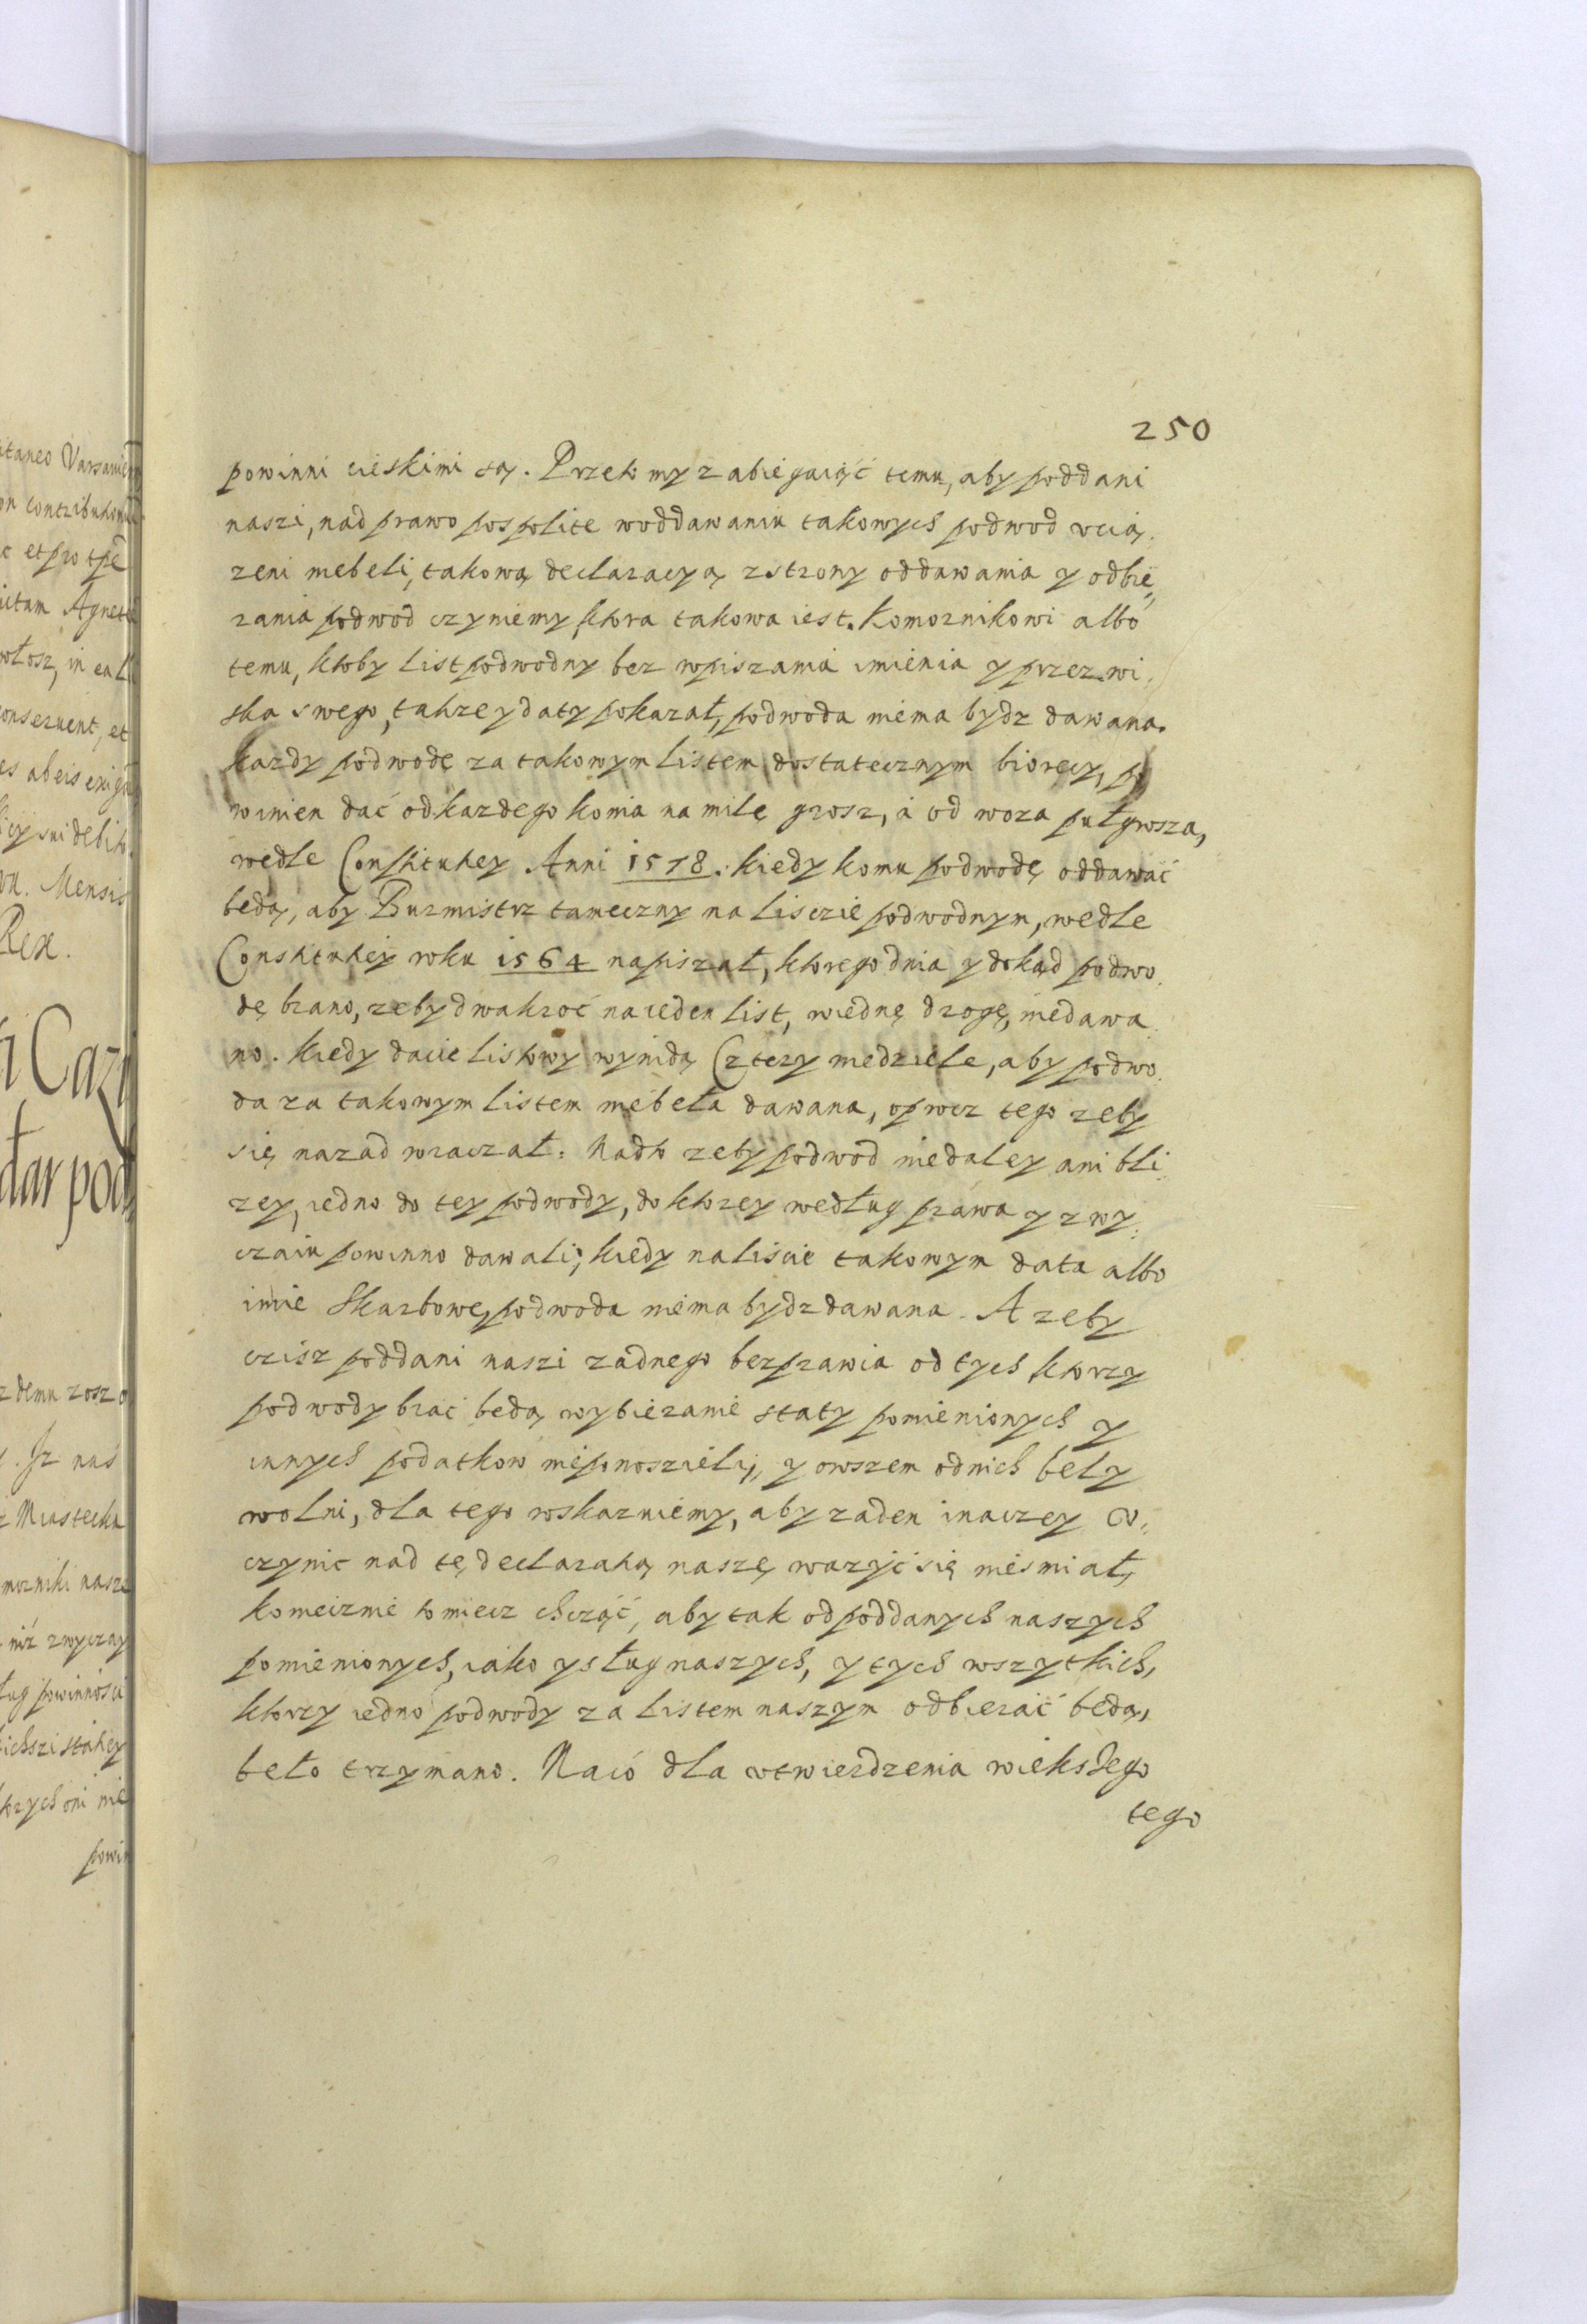 250
powinni cięskimi są. Przeto my zabiegaiąć temu, aby poddani
naszi, nad prawo pospolite woddawaniu takowych podwod vcią,
zeni niebeli, takową declaracyą zstrony oddawania y odbie,
rania podwod czyniemy, ktora takowa iest. Komornikowi albo
temu, ktoby list podwodny bez wpiszania imienia y przezwi,
ska swego, takze y daty pokazał, podwoda niema bydz dawana.
Kazdy podwodę za takowym listem dostatecznym biorący, po
winien dać od kazdego konia na milę grosz, á od woza pułgrosza,
wedle Constitutiey Anni 1578. kiedy komu podwodę oddawać
będą, aby Burmistrz tameczny na lisczie podwodnym, wedle
Constitutiey roku 1564 napiszał, ktorego dnia y dokąd podwo,
dę brano, zeby dwakroć na ieden list, wiednę drogę, niedawa
no. Kiedy dacie listowy wynidą Cztery niedziele, aby podwo,
da za takowym listem niebeła dawana, oprocz tego zeby
się nazad wraczał. Nadto zeby podwod niedaley ani bli,
zey, iedno do tey podwody, do ktorey według prawa y zwy,
czaiu powinno dawali; kiedy na liscie takowym data albo
imie skarbowe, podwoda niema bydz dawana. A zeby
czisz poddani naszi zadnego bezprawia od tych ktorzy
podwody brać będą wybieranie staty pomienionych y
innych podatkow nieponoszieli, y owszem od nich beły
wolni, dla tego wskazuiemy, aby zaden inaczey v,
czynic nad tę declaratią naszę wazyć się niesmiał,
koniecznie to miecz chcząć, aby tak od poddanych naszych
pomienionych, iako y sług naszych, y tych wszytkich,
ktorzy iedno podwody za listem naszym odbierać będą,
beło trzymano. Na co dla vtwierdzenia wiekszego
tego